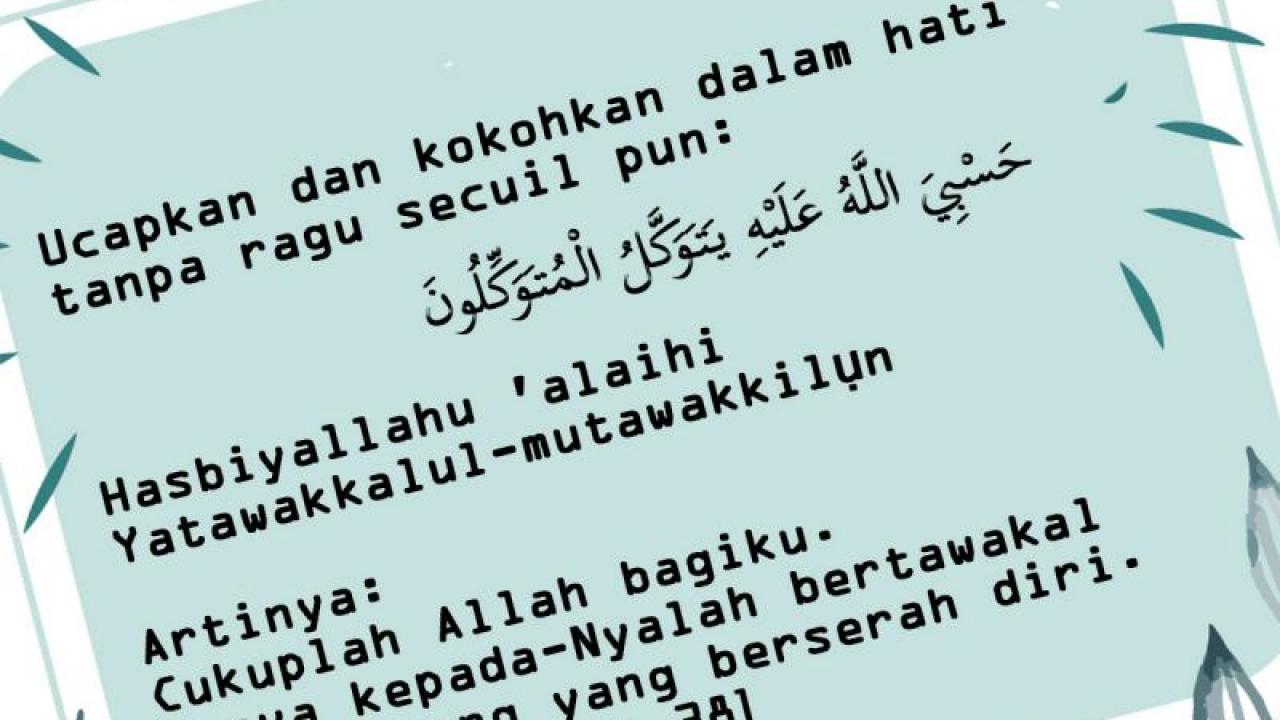 Ucapkan dan kokohkan dalam hati
tanpa ragu secuil pun:
حَسْبِيَ اللَّهُ عَلَيْهِ يَتَوَكَّلُ الْمُتَوَكِّلُونَ
Hasbiyallahu 'alaihi
Yatawakkalul-mutawakkilụn
Artinya:
Cukuplah Allah bagiku.
kepada-Nyalah bertawakal
yang berserah diri.
38]